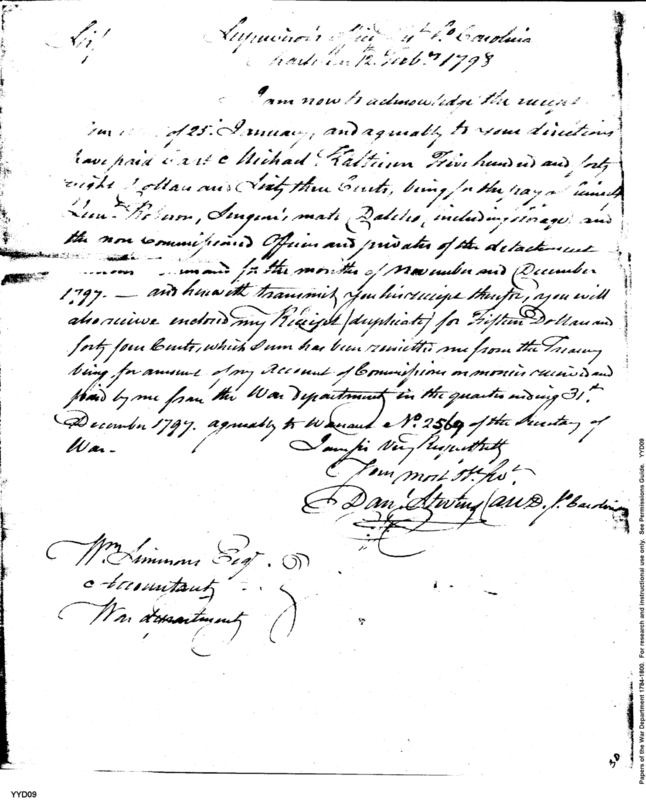 Sir, Supervisor's Office Dist So. Carolina
Charleston 12 Feby. 1798
I am now to acknowledge the receipt
of 25 January, and agreeably to your directions
have paid Capt Michael Kalteisen Five hundred and forty
eight Dollars and Sixty three Cents, being for the pay of himself
Lieut. Robeson, Surgeon's mate Dalcho, including forage and
the non Commissioned Officers and privates of the detachment
command for the months of November and December
1797. — and herewith transmit you his receipt therefor, you will
also receive enclosed my Receipt (duplicate) for Fifteen Dollars and
forty four Cents, which sum has been remitted me from the Treasury
being for amount of my Account of Commissions on monies received and
paid by me from the War department in the quarter ending 31st
December 1797. agreeably to Warrant No. 2569 of the Secretary of
War.
I am Sir Very Respectfully
Your most Ob. Svt.
Danl. Stevens So. Carolina
Wm Simmons Esqr.
Accountant
War department
30
Papers of the War Department 1784-1800. For research and instructional use only. See Permissions Guide. YYD09
YYD09